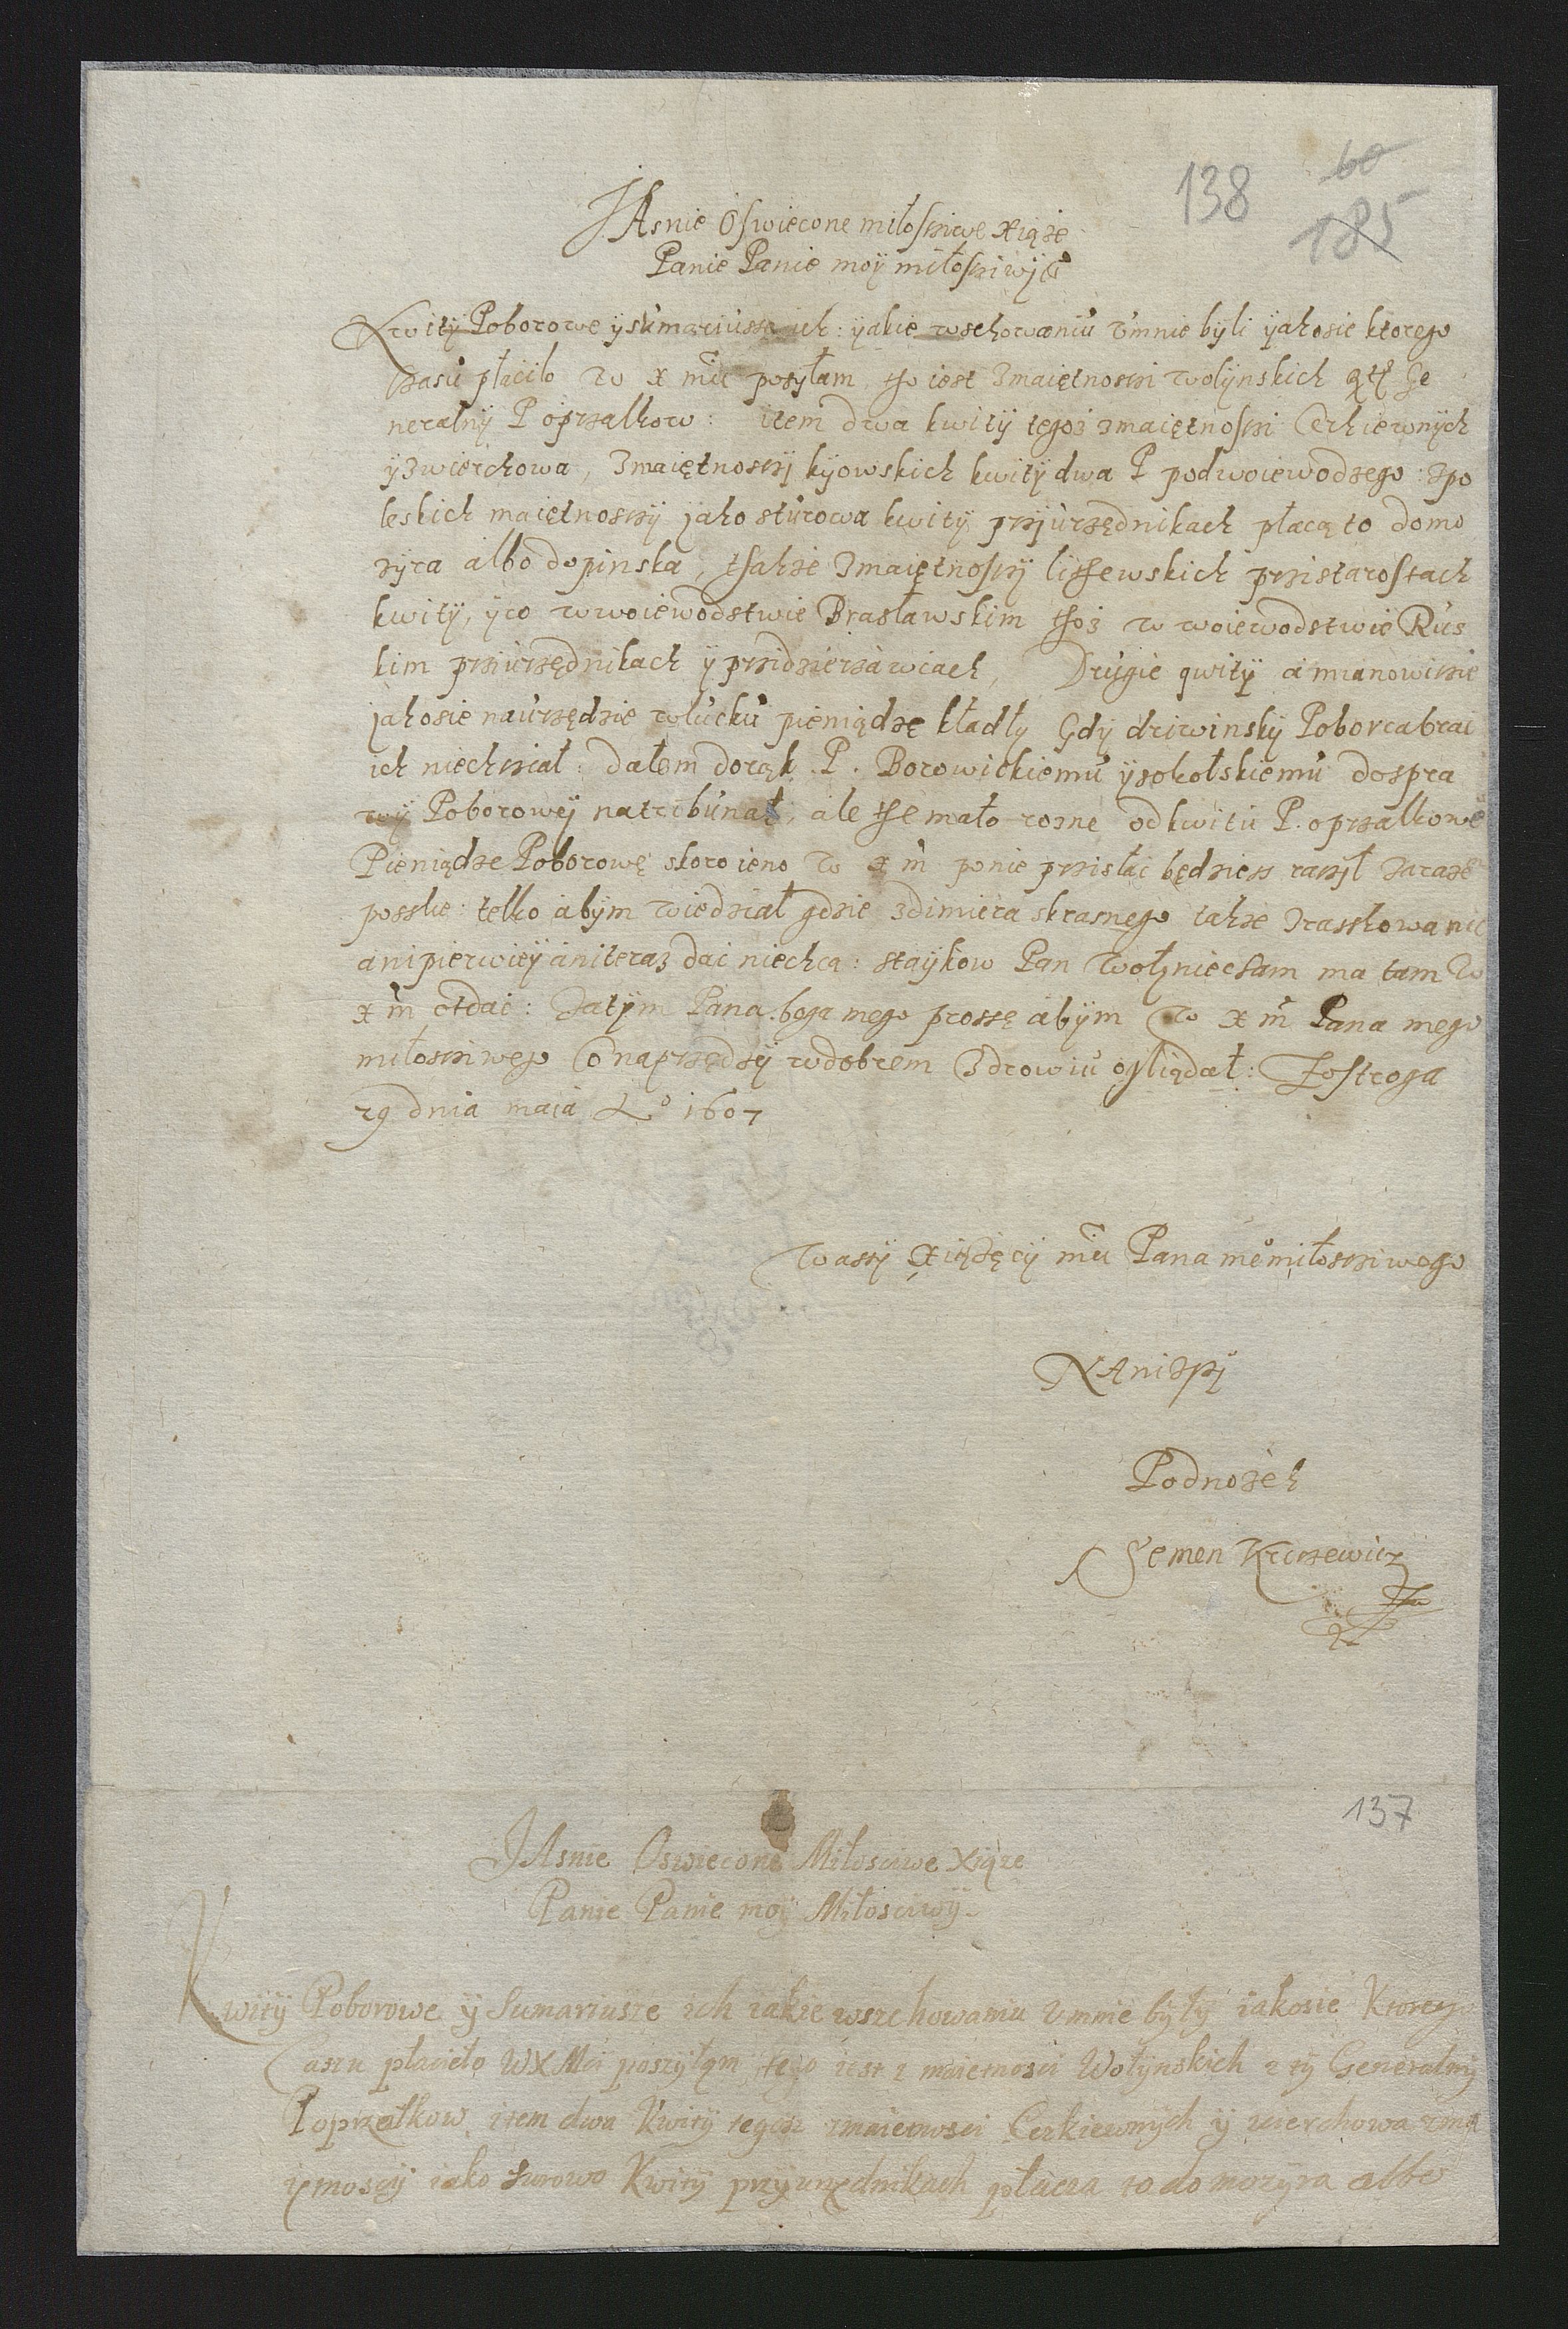 138 60
185
JAsnie Oswiecone miłosciwe xiąże
Panie Panie moÿ miłosciwÿ
Kwitÿ Poborowe ÿ sumariusze ich: ÿakie wschowaniu u mnie byli ÿakosie ktorego
czasu płaciło W x mci posyłam, tho iest zmaiętnosci wolÿnskich Ge
neralnÿ P oprzalkow: item dwa kwitÿ tegoż zmaiętnosci Cerkiewnÿch
ÿ zwierchowa, zmaiętnoscÿ kÿowskich kwitÿ dwa P podwoiewodzego: zpo
leskich maiętnoscÿ jako sturowa kwitÿ przÿ urzędnikach płacą to do mo
zÿra albo do pinska, thakze zmaiętnoscÿ lissewskich przi starostach
kwitÿ, ÿ co w woiewodstwie Brasławskim thoż w woiewodstwie Rus
kim przi urzędnikach ÿ przi dzierżawcach, Drugie qwitÿ a mianowicie
jakosie na urzędzie w lucku pieniądze kładłÿ Gdÿ driwinskÿ Poborca brac
ich niechciał: dałem do rąk P. Borowickiemu ÿ sokolskiemu do spra
wÿ Poborowej na tribunał, ale the mało rozne od kwitu P. oprzalkowe
Pieniądze Poborowe skoro ieno W x m po nie przisłac będziesz raczÿł zaraze
posslie: telko abÿm wiedział gdzie zdimiera skrasnego takze zrasskowa nic
ani pierwieÿ ani teraz dac niechcą: staÿkow Pan Wołżniec sam ma tam W
x m oddac: Zatÿm Pana boga mego prosszę abÿm W x m Pana mego
miłosciwego Co naprzedzÿ w dobrem zdrowiu oglądał: Zostroga
29 dnia maia Ao 1607
Wassÿ xiążęcÿ mci Pana meo miłosciwego
NAniżsÿ
Podnożek
Semen
137
JAsnie Oswiecone Miłosciwe Xiąze
Panie Panie moÿ Miłosciwÿ
Kwitÿ Poborowe ÿ Sumariusze ich iakie wschowaniu u mnie bÿłÿ iakosie Ktorego
Czasu płacieło WX Mci poszÿłam tego iest z maietnosci Wołÿnskich z tÿ Generalnÿ
P oprzałkow item dwa Kwitÿ tegosz z maietnosci Cerkiewnÿch ÿ zwierchowa zma
iętnoscÿ iako surowo Kwitÿ przÿ urzędnikach płacza to do mozÿra albo